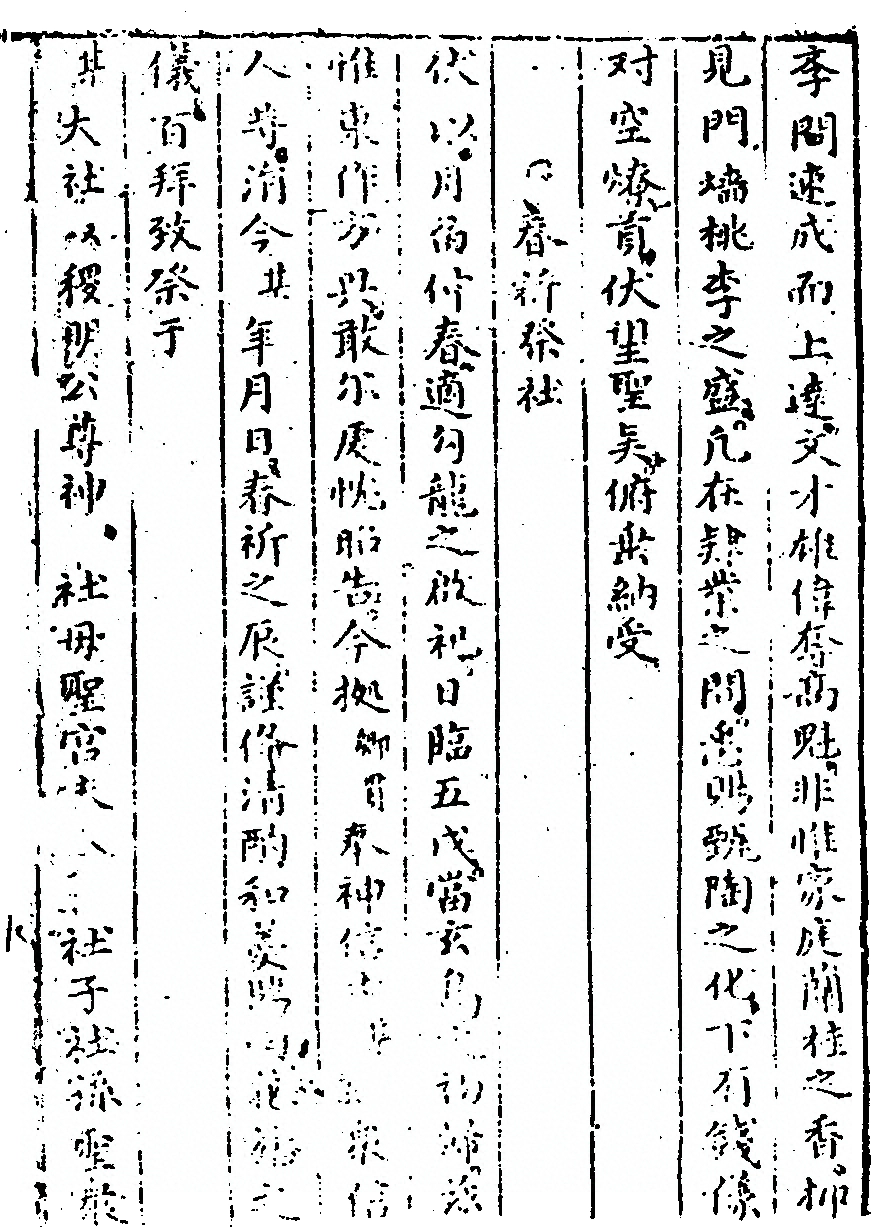 季間速成而上達文才雄偉奪高魁非惟家庭蘭桂之香抑
見門墻桃李之盛凡在肄業之間悉賜甄陶之化下有錢係
对空燎貢伏望聖矣俯垂納受
春祈祭社
伏以月届仲春適勾龍之啟祀日臨五戊當玄鳥之初
惟東作方興敢尔虔忱昭告今拠鄉貫奉神信士某 衆信
人等涓今某年月日春祈之辰謹備清酌和羹
儀百拜致祭于
某大社以稷明公尊神 社母聖宮夫人 社子社孫聖衆